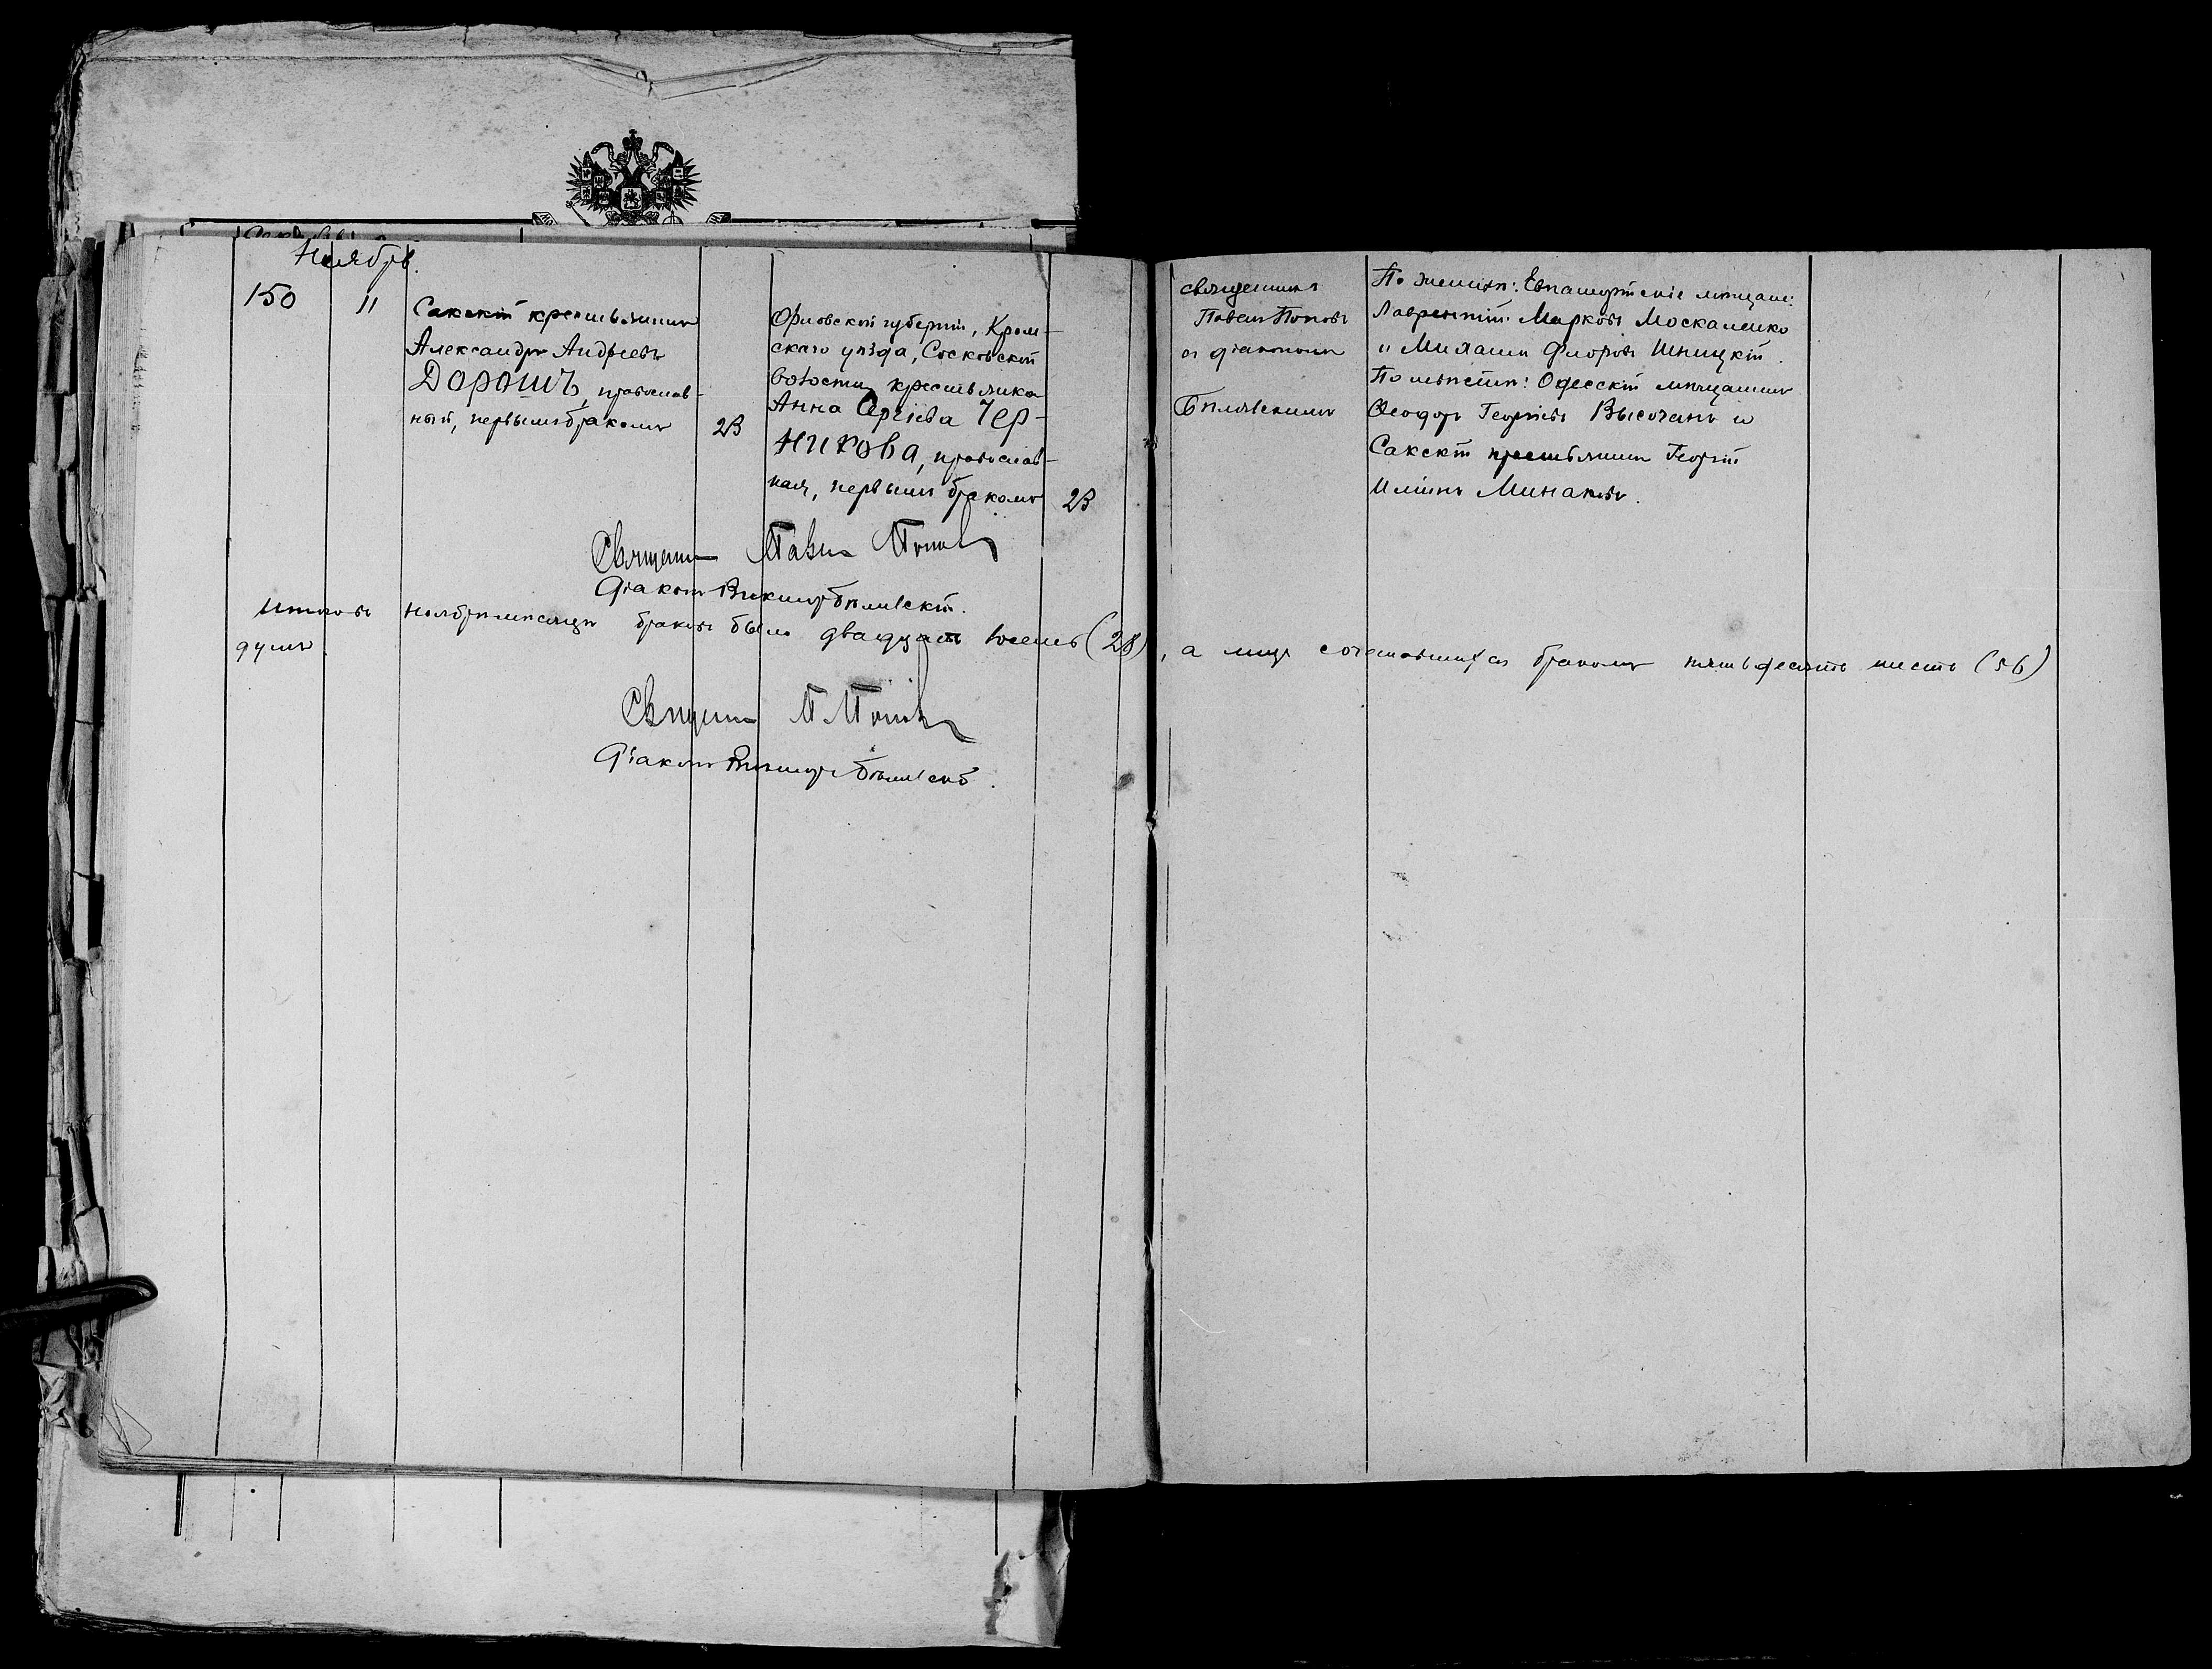 Ноябрь.
150
11
Сакскій крестьянинъ
Александръ Андреевъ
Дорошъ, православ-
ный, первымъ бракомъ
23
Орловской губерніи, Кром-
скаго уѣзда, Сосковской
волости крестьянка
Анна Сергіева Чер-
никова, православ-
ная, первымъ бракомъ
23
священникъ
Павелъ Поповъ
съ діакономъ
Бѣлявскимъ
По женихѣ: Евпаторійскіе мѣщане:
Лаврентій Марковъ Москаленко
и Михаилъ Флоровъ
По невѣстѣ: Одесскій мѣщанинъ
Ѳеодоръ Георгіевъ Высочанъ и
Сакскій крестьянинъ Георгій
Иліинъ Минаковъ.
Священникъ Павелъ Поповъ
Діаконъ Викторъ Бѣлявскій.
Итого въ ноябрѣ мѣсяцѣ браковъ было двадцать восемь (28), а лицъ сочетавшихся бракомъ пятьдесятъ шесть (56)
душъ.
Священникъ П. Поповъ
Діаконъ Викторъ Бѣлявскій.